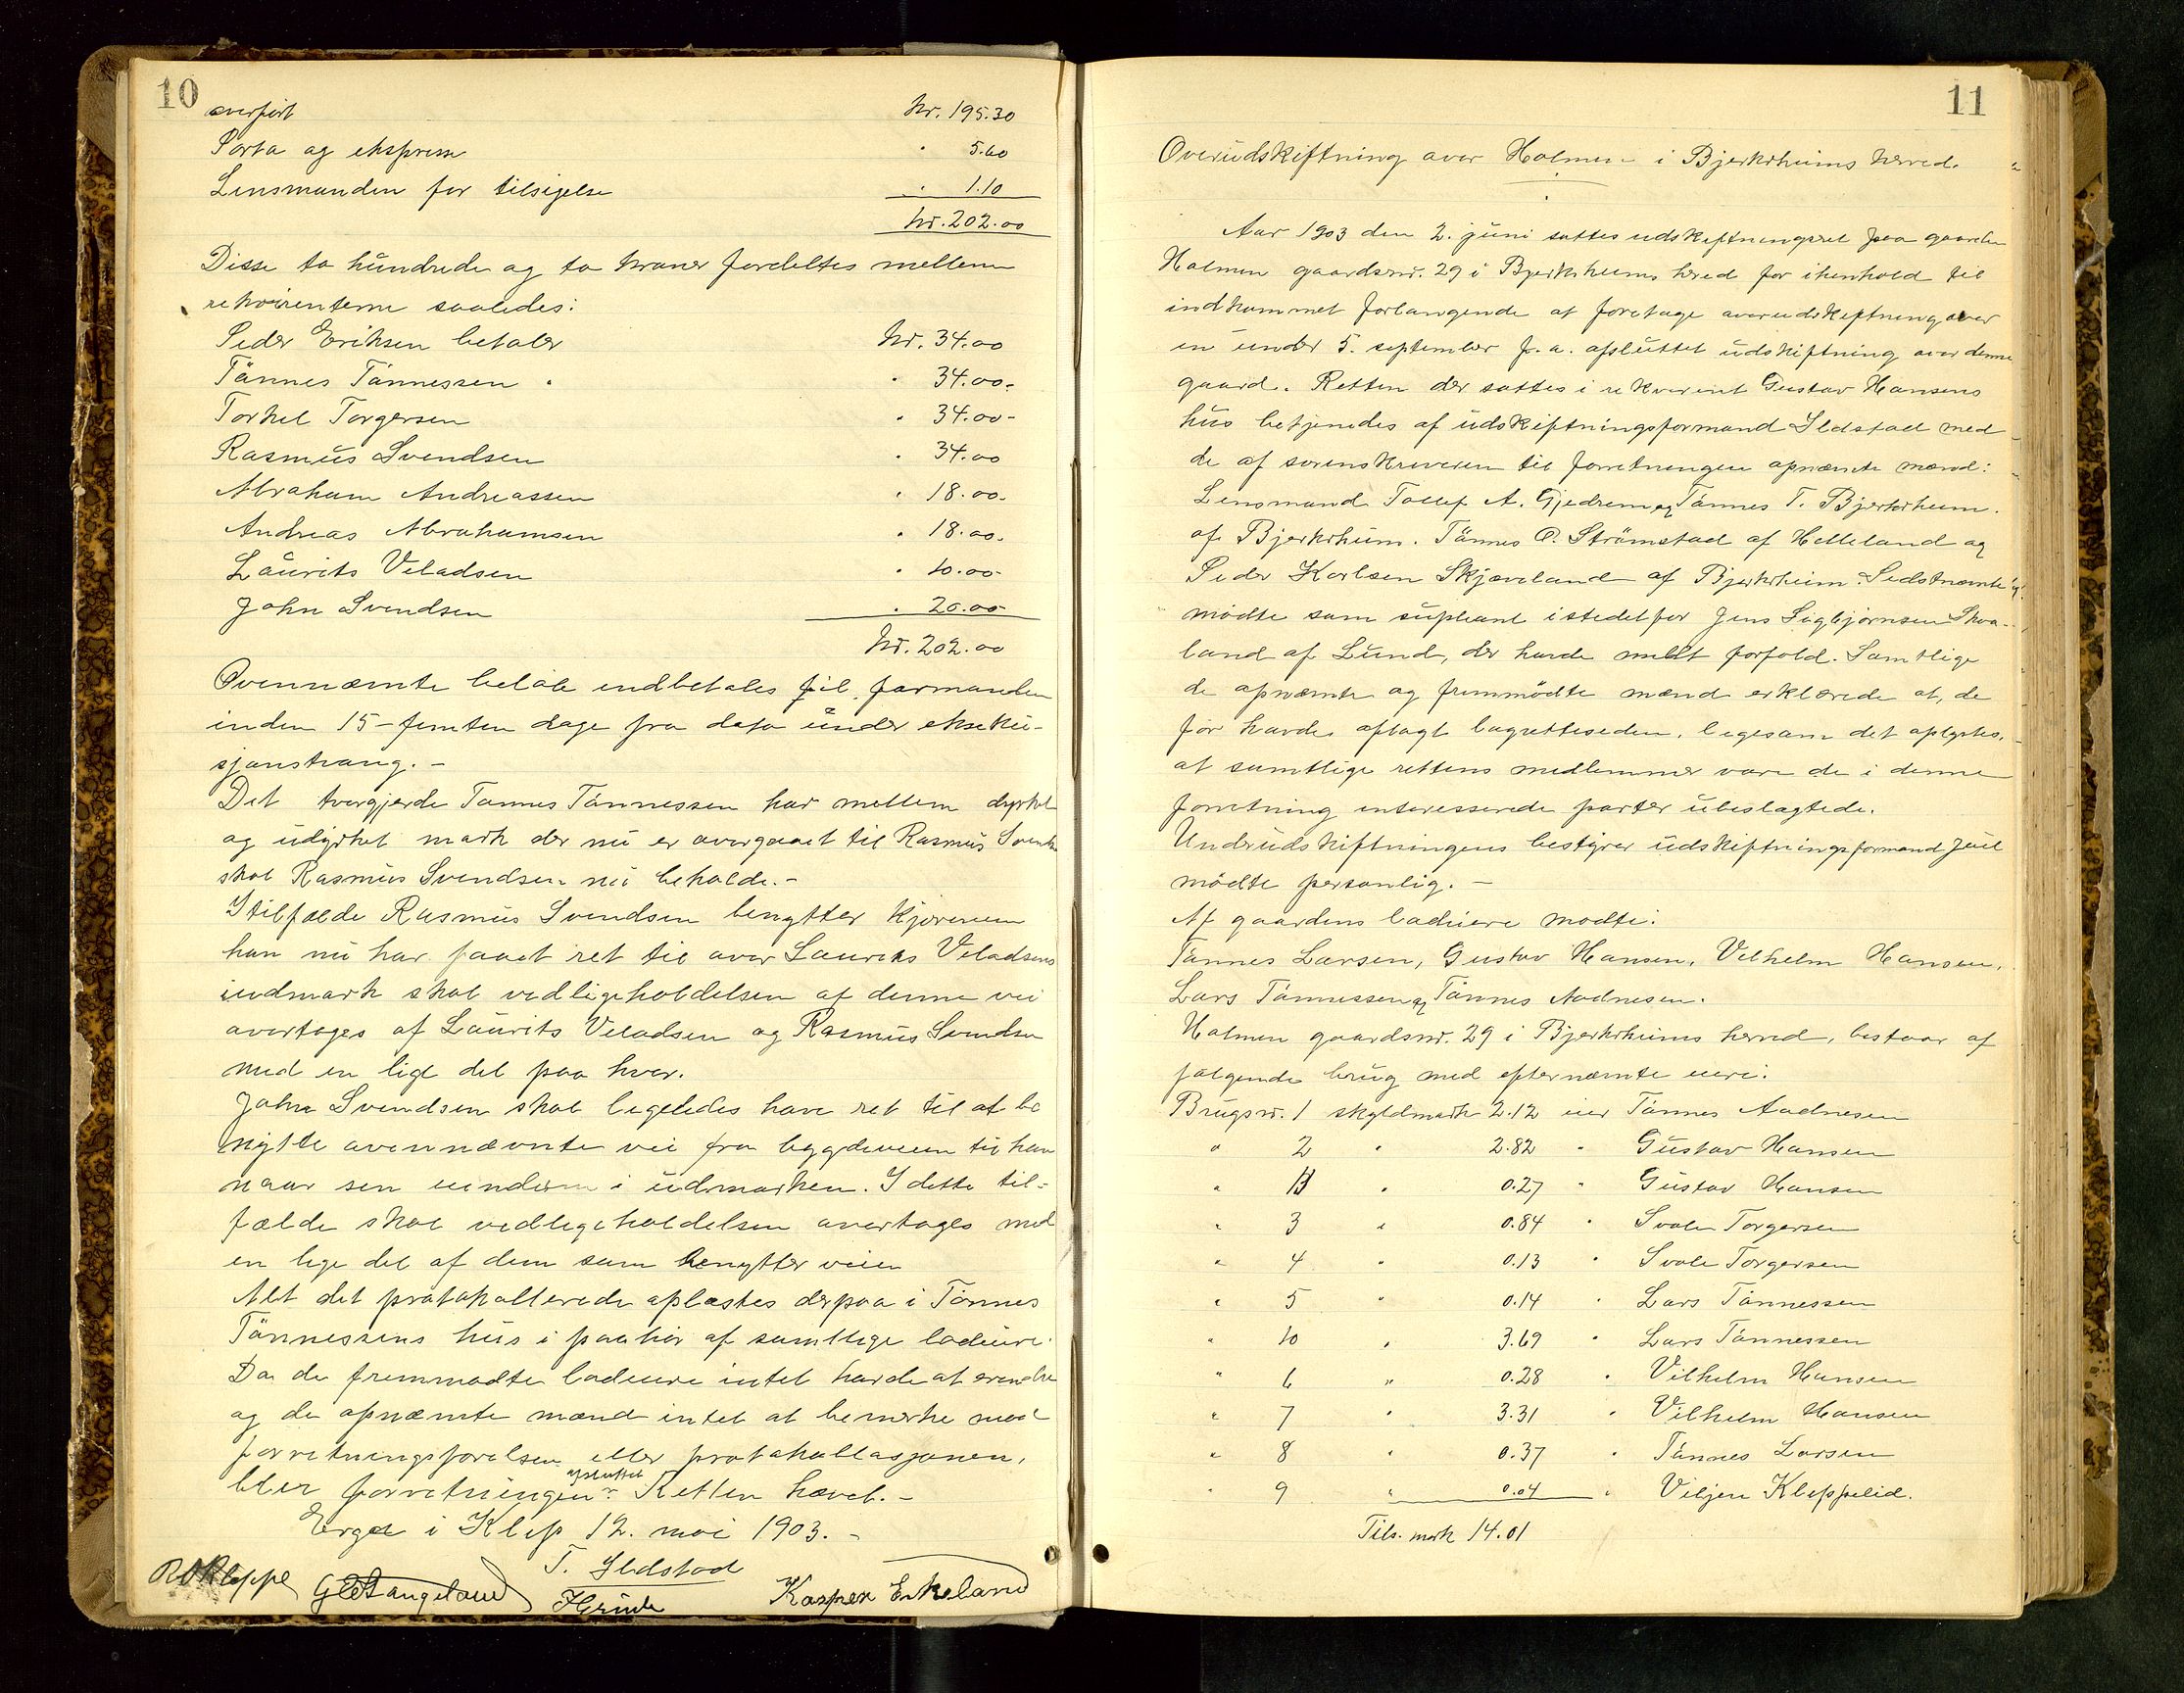 10
overført Kr. 195.30
Porto og ekspress " 5.60
Lensmanden for tilsigelse " 1.10
Kr. 202.00
Disse to hundrede og to kroner fordeltes mellem
rekvirenterne saaledes:
Peder Eriksen betaler Kr. 34.00
Tönnes Tönnessen " " 34.00-
Torkel Torgersen " 34.00-
Rasmus Svendsen " 34.00
Abraham Andreassen " 18.00-
Andreas Abrahamsen " 18.00-
Laurits Veladsen " 10.00-
John Svendsen " 20.00
Kr. 202.00
Ovennæmte beløb indbetales til formanden
inden 15 - femten dage fra dato under ekseku-
sjonstvang. -
Det tvergjerde Tønnes Tönnessen har mellem dyrket
og udyrket mark der nu er overgaaet til Rasmus Svends
skal Rasmus Svendsen nu beholde. -
I tilfælde Rasmus Svendsen benytter kjøreveien
han nu har faaet ret til over Laurits Veladsens
indmark skal vedligeholdelsen af denne vei
overtages af Laurits Veladsen og Rasmus Svendsen
med en lige del paa hver.
John Svendsen skal ligeledes have ret til at be
nytte ovennævnte vei fra bygdeveien til han
naar sin eiendom i udmarken. I dette til-
fælde skal vedligeholdelsen overtages med
en lige del af dem som benytter veien
Alt det protokollerede oplæstes derpaa i Tönnes
Tönnessens hus i paahør af samtlige lodeiere.
Da de fremmødte lodeiere intet havde at erindre
og de opnæmte mænd intet at bemerke med
forretningsførelsen eller protokollasjonen,
blev forretningen afsluttet. Retten hævet. -
Erga i Klep 12. mai 1903. -
T. Ildstad
R O Kleppe Kasper Erkeland
11
Overudskiftning over Holmen i Bjerkrheims herred.
Aar 1903 den 2. juni sattes udskiftningsret paa gaarden
Holmen gaardsnr. 29 i Bjerkrheims herred for i henhold til
indkommet forlangende at foretage overudskiftning over
en under 5. september f. a. afsluttet udskiftning over denne
gaard. Retten der sattes i rekvirent Gustav Hansens
hus betjenedes af udskiftningsformand Ildstad med
de af sorenskriveren til forretningen opnæmte mænd:
Lensmand Tollef A. Gjedrem og Tönnes T. Bjerkrheim.
af Bjerkrheim. Tönnes O. Strömstad af Helleland og
Peder Karlsen Skjæveland af Bjerkrheim. Sidstnæmte
mödte som supleant istedetfor Jens Sigbjørnsen Skaa-
land af Lund, der havde meldt forfald. Samtlige
de opnæmte og fremmödte mænd erklærede at, de
før havde aflagt lagretteseden, ligesom det oplystes,
at samtlige rettens medlemmer vare de i denne
forretning interesserede parter ubeslægtede.
Underudskiftningens bestyrer udskiftningsformand Juul
mödte personlig. -
Af gaardens lodeiere mødte:
Tönnes Larsen, Gustav Hansen, Vilhelm Hansen,
Lars Tönnessen og Tönnes Aadnesen.
Holmen gaardsnr. 29 i Bjerkrheims herred, bestaar af
følgende brug med efternæmte eiere:
Brugsnr. 1 skyldmark 2.12 eier Tönnes Aadnesen
" 2 " 2.82 " Gustav Hansen
" 11 " 0.27 " Gustav Hansen
" 3 " 0.84 " Svale Torgersen
" 4 " 0.13 " Svale Torgersen
" 5 " 0.14 " Lars Tönnessen
" 10 " 3.69 " Lars Tönnessen
" 6 " 0.28 " Vilhelm Hansen
" 7 " 3.31 " Vilhelm Hansen
" 8 " 0.37 " Tönnes Larsen
" 9 " 0.04 " Viljen Kleppelid.
Tils. mark 14.01